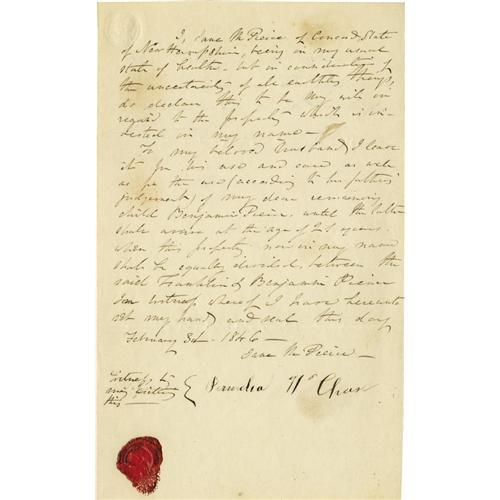 I, Jane M Pierce of Concord State
of New Hampshire, being in my usual
state of health - but in consideration of
the uncertainty of all earthly things,
do declare this to be my will in
regard to the property which is in-
vested in my name -
To my beloved husband I leave
it for his use and care as well
as for the use (according to his
judgement) of my dear remaining
child Benjamin Pierce, until the latter
shall arrive at the age of 21 years.
when this property now in my name
shall be equally divided, between the
said Franklin & Benjamin Pierce
In witness whereof I have hereunto
set my hand and seal this day
February 3d - 1846 -
Jane M Pierce -
Witness to
my
this